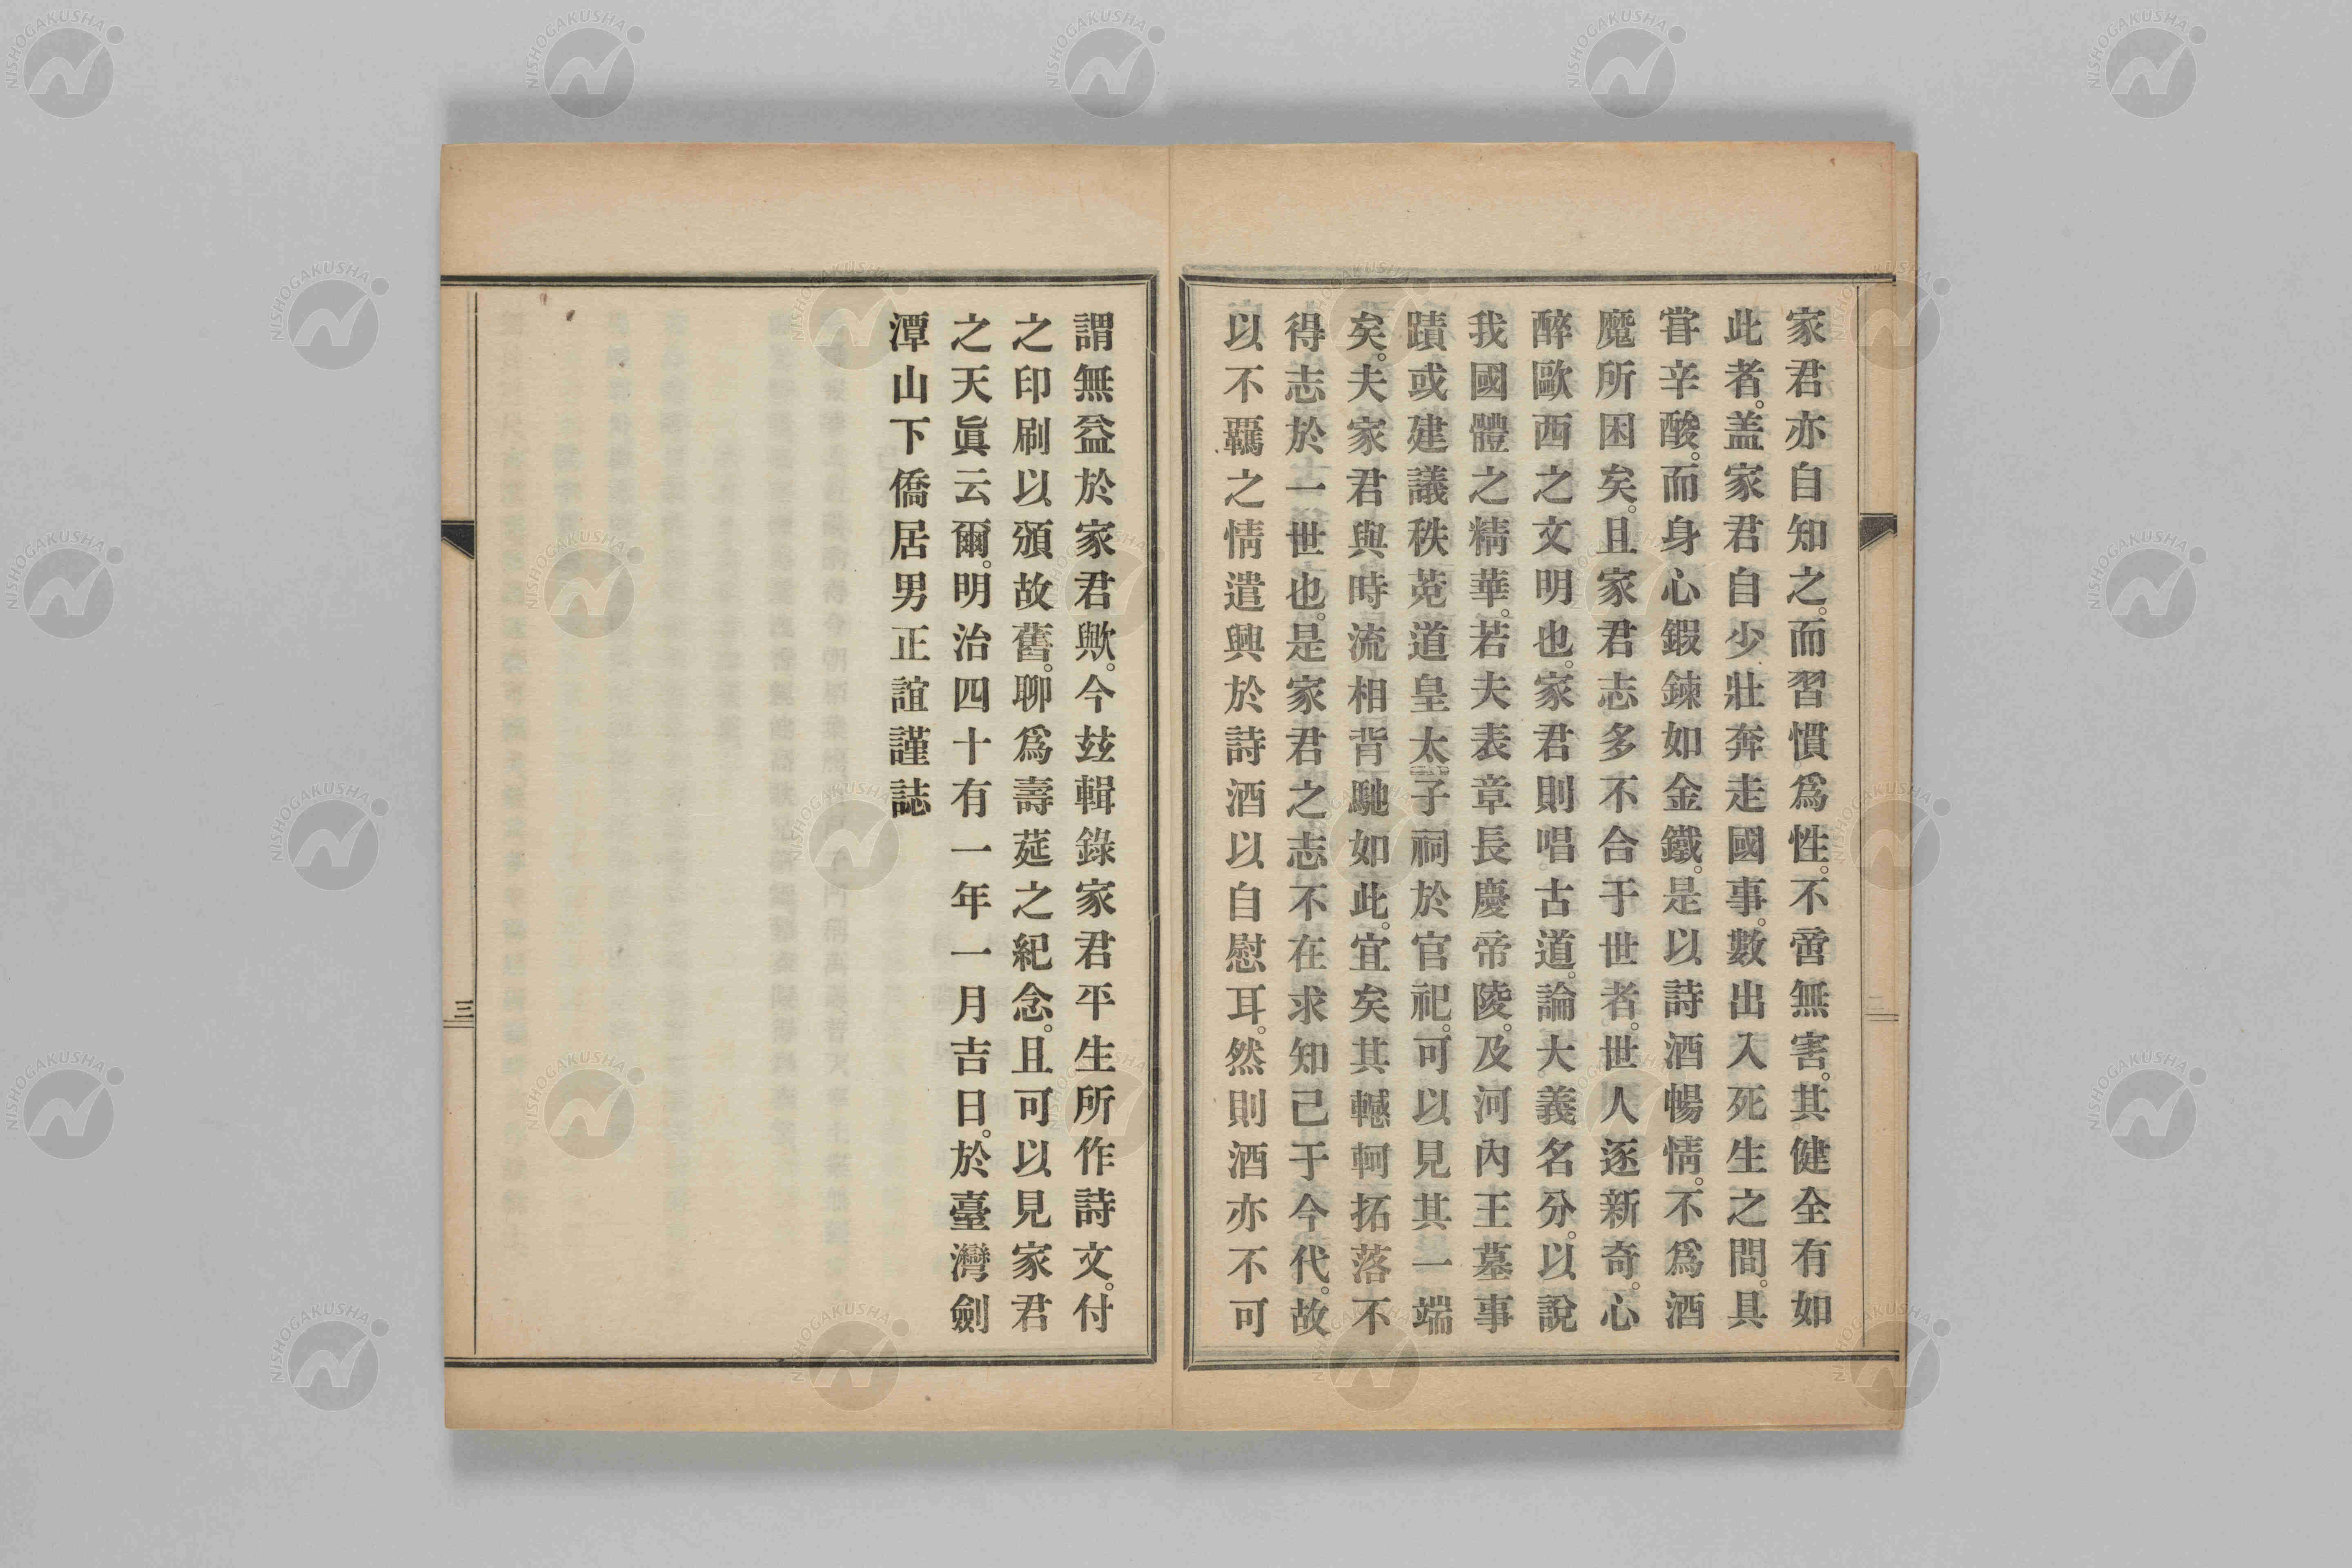 家君亦自知之。而習慣爲性。不啻無害。其健全有如
此者。盖家君自少壯奔走國事。數出入死生之間。具
甞辛酸。而身心鍜鍊如金鐵。是以詩酒暢情。不爲酒
魔所困矣。且家君志多不合于世者。世人逐新奇。心
醉歐西之文明也。家君則唱古道。論大義名分。以說
我國體之精華。若夫表章長慶帝陵。及河內王墓事
蹟或建議秩菟道皇太子祠於官祀。可以見其一端
矣。夫家君與時流相背馳如此。宜矣其轗軻拓落不
得志於一世也。是家君之志不在求知己于今代。故
以不覊之情遣興於詩酒以自慰耳。然則酒亦不可
二
謂無益於家君歟。今玆輯錄家君平生所作詩文。付
之印刷以頒故舊。聊爲壽莚之紀念。且可以見家君
之天眞云爾。明治四十有一年一月吉日。於臺灣劍
潭山下僑居男正誼謹誌
三
NISHOGAKUSHA